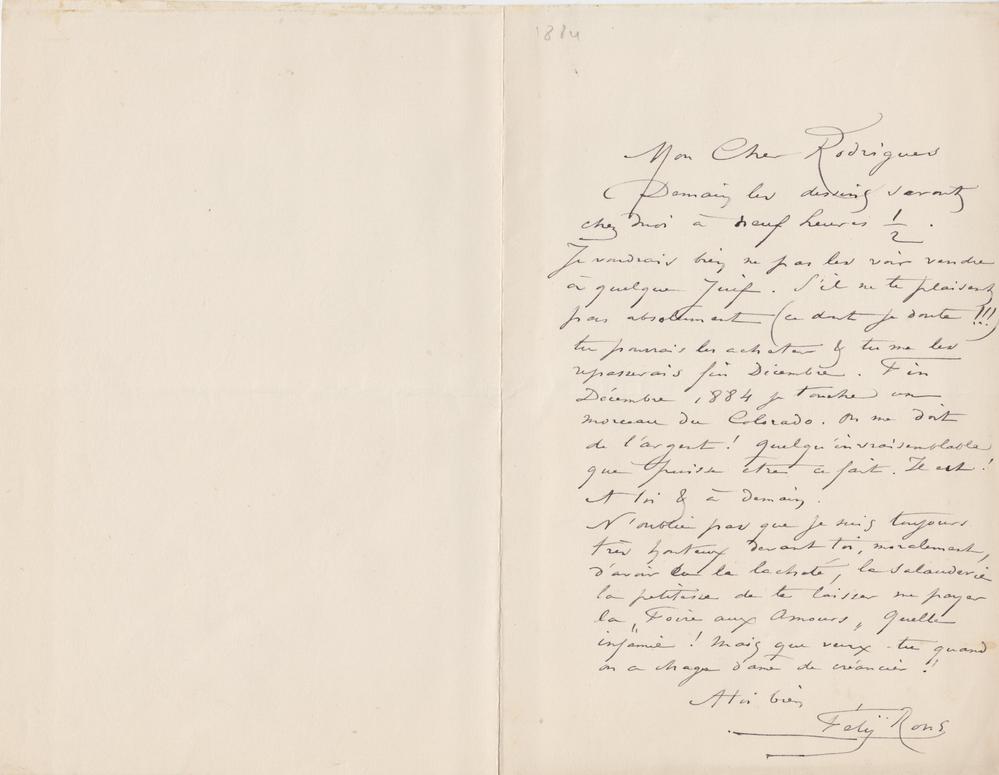 1884
Mon Cher Rodrigues
Demain les dessins seront
chez moi à neuf heures 1/2.
Je voudrais bien ne pas les voir vendre
à quelque Juif. S'il ne te plaisent
pas absolument (ce dont je doute !!!)
tu pourrais les acheter & tu me les
repasserais fin Décembre. Fin
Décembre 1884 je touche un
morceau du Colorado. On me doit
de l'argent ! quelqu'invraisemblable
que puisse etre ce fait. Il est !
A toi & à demain.
N'oublie pas que je suis toujours
très honteux devant toi, moralement,
d'avoir eu la lacheté, la salauderie
la petitesse de te laisser me payer
la „Foire aux Amours„ Quelle
infamie ! Mais que veux-tu quand
on a charge d'ame de créancier !!
A toi bien
Félÿ Rops